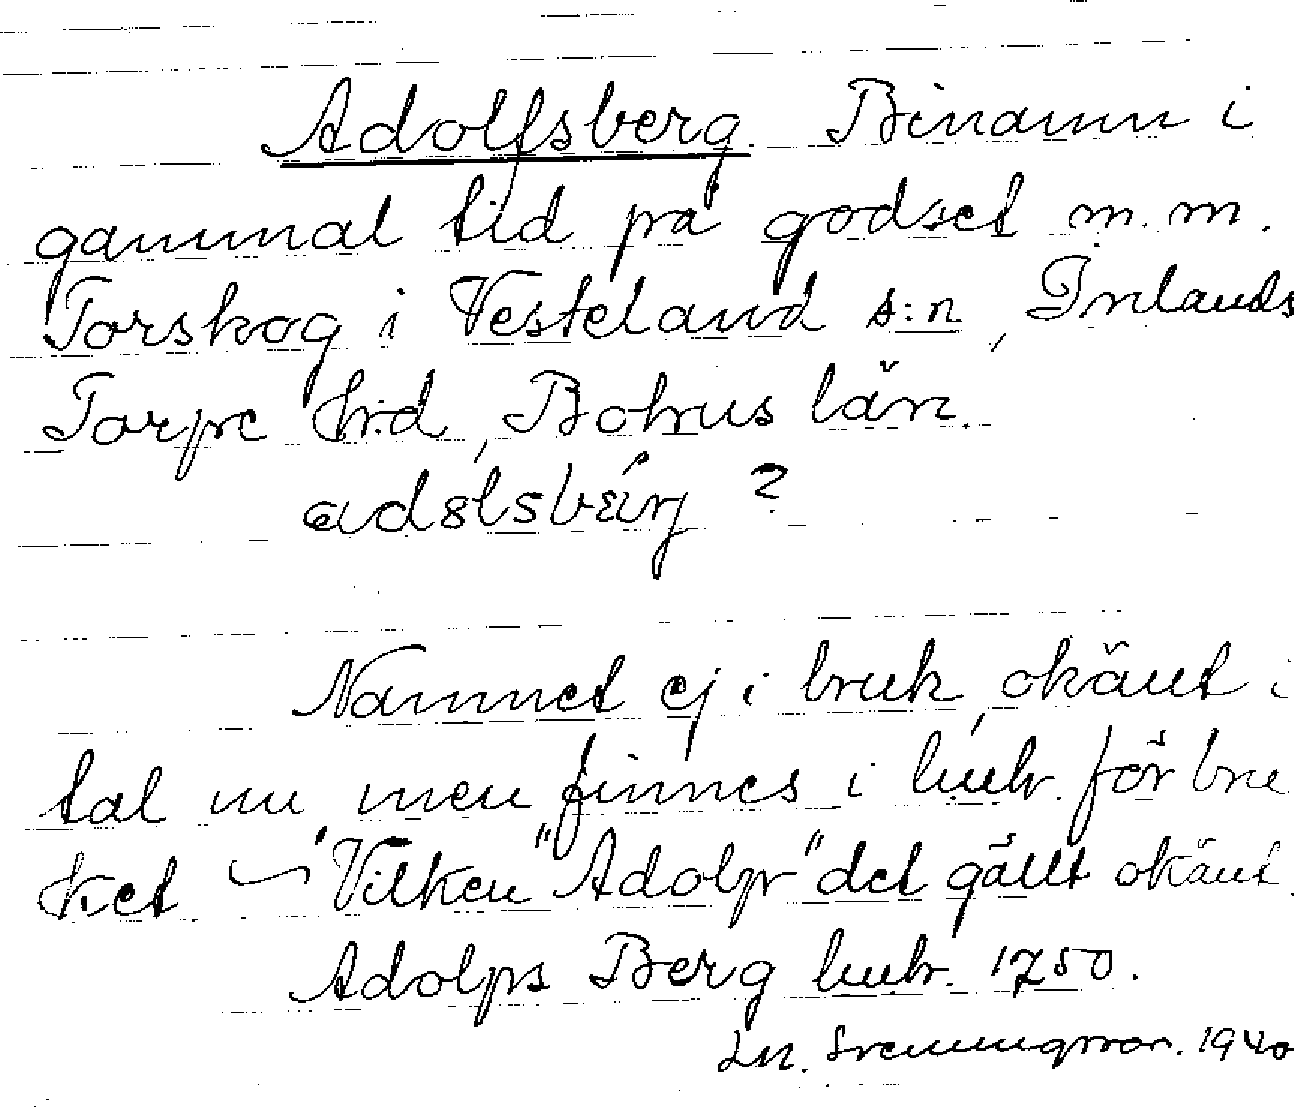 Adolfsberg. Binamn i
gammal tid på godset m.m.
Torskog i Vesteland s:n, Inlands
Torpe h:d, Bohus län.
adólsbärj ?
Namnet ej i bruk, okänt i
tal nu men finnes i husb. för bru
ket Vilken "Adolph" det gällt okänt.
Adolps Berg husb. 1750.
1940